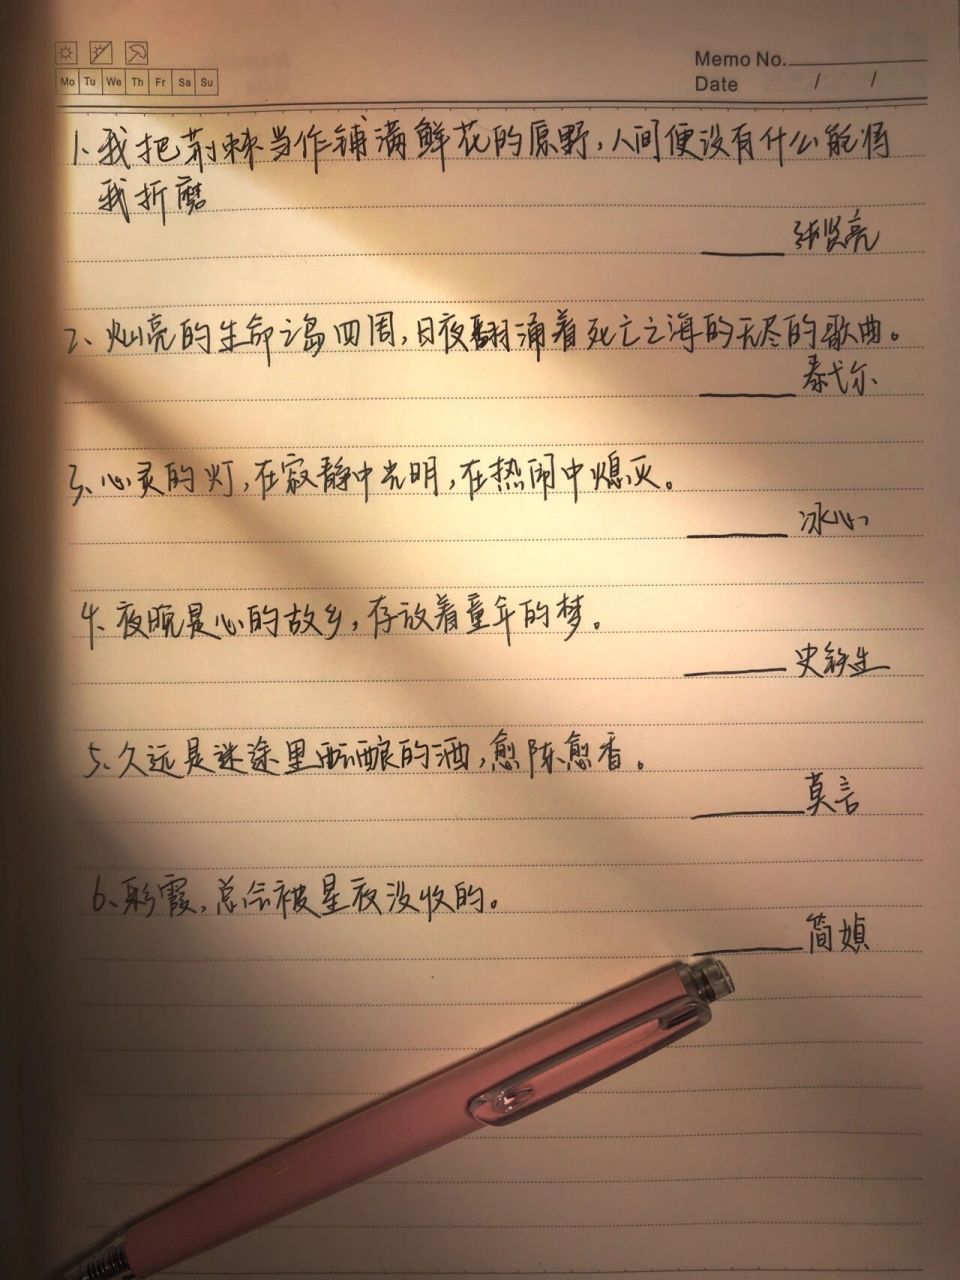 Memo No.
Mo Tu We Th Fr Sa Su
Date / /
1、我把荆棘当作铺满鲜花的原野,人间便没有什么能将
我折磨
——张贤亮
2、灿亮的生命之岛四周,日夜翻涌着死亡之海的无尽的歌曲。
——泰戈尔
3、心灵的灯,在寂静中光明,在热闹中熄灭。
——冰心
4、夜晚是心的故乡,存放着童年的梦。
——史铁生
5、久远是迷途里酝酿的酒,愈陈愈香。
——莫言
6、彩霞,总会被星夜没收的。
——简媜